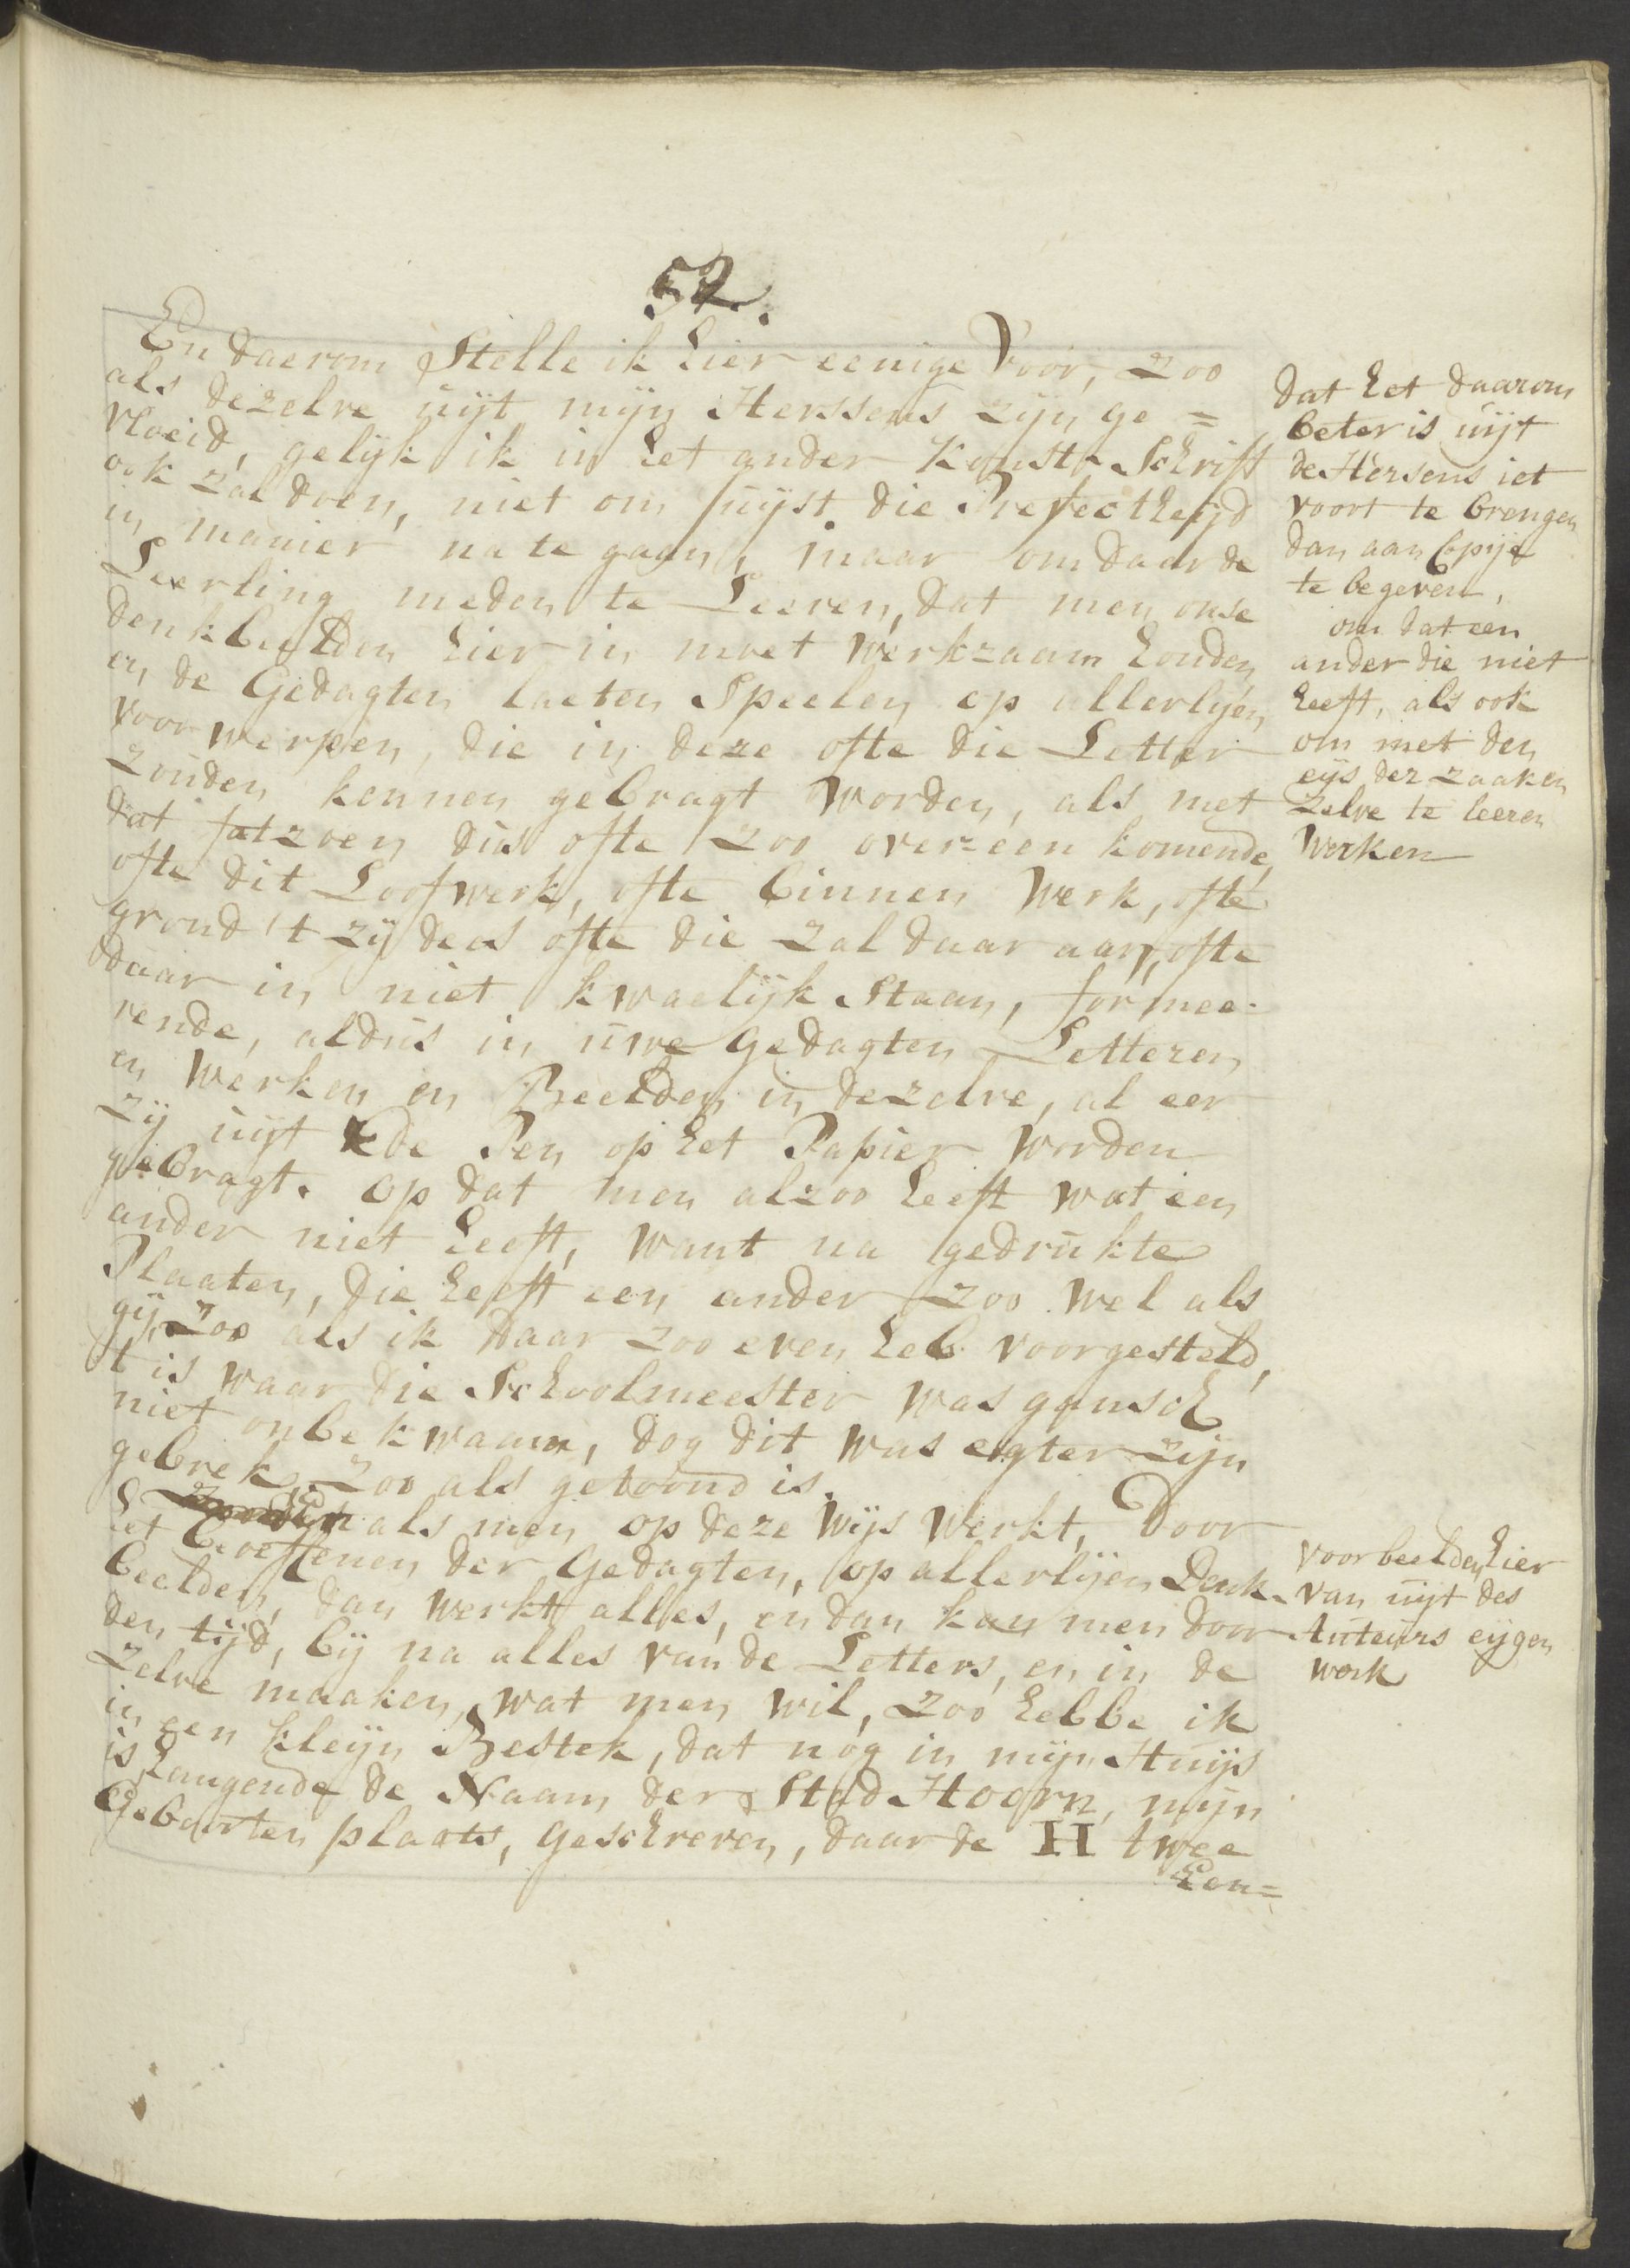 52.
En daerom Stelle ik hier eenige Voor, zoo
als dezelve uijt mijn Herssens zijn ge =
vloeid, gelijk ik in het ander Konste Schrift
ook zal doen, niet om juijst die Prefectheijd
in manier na te gaan, maar om daar de
Leerling meden te Leeren, dat men onse
denkbeelden hier in moet werkzaam houden
en de Gedagten laeten Speelen op allerlijen
voorwerpen, die in deze ofte die Letter
zouden kennen gebragt worden, als met
dat fatzoen dus ofte zoo overeen komende,
ofte dit Loofwerk, ofte binnen werk, ofte
grond 't zij deas ofte die zal daar aan, ofte
daar in niet kwaelijk Staan, formee-
rende, aldus in uwe gedagten Letteren
en Werken en Beelden in dezelve, al eer
zij uijt de Pen op het Papier worden
gebragt. op dat men alzoo heeft wat een
ander niet heeft, want na gedrukte
Plaaten, die heeft een ander zoo wel als
gij, zoo als ik daar zoo even heb voorgesteld,
't is waar die Schoolmeester was gansch
niet onbekwaam, dog dit was egter zijn
gebrek, zoo als getoond is.
als men op deze wijs werkt, Door
het beoeffenen der Gedagten, op allerlijen Denk-
beelden, dan werkt alles, en dan kan men door
den tijd, bij na alles van de Letters, en in de
zelve maaken, wat men wil, zoo hebbe ik
in een kleijn Bestek, dat nog in mijn Huijs
is hangende de Naam der Stad Hoorn, mijn
Geboorten plaats, geschreven, daar de H twee
Een=
dat het daarom
beter is uijt
de Hersens iet
voort te brengen
dan aan Copije
te begeven,
om dat een
ander die niet
heeft, als ook
om met den
eijs der zaaken
zelve te leeren
werken
voorbeelden hier
van uijt des
Auteurs eijgen
werk